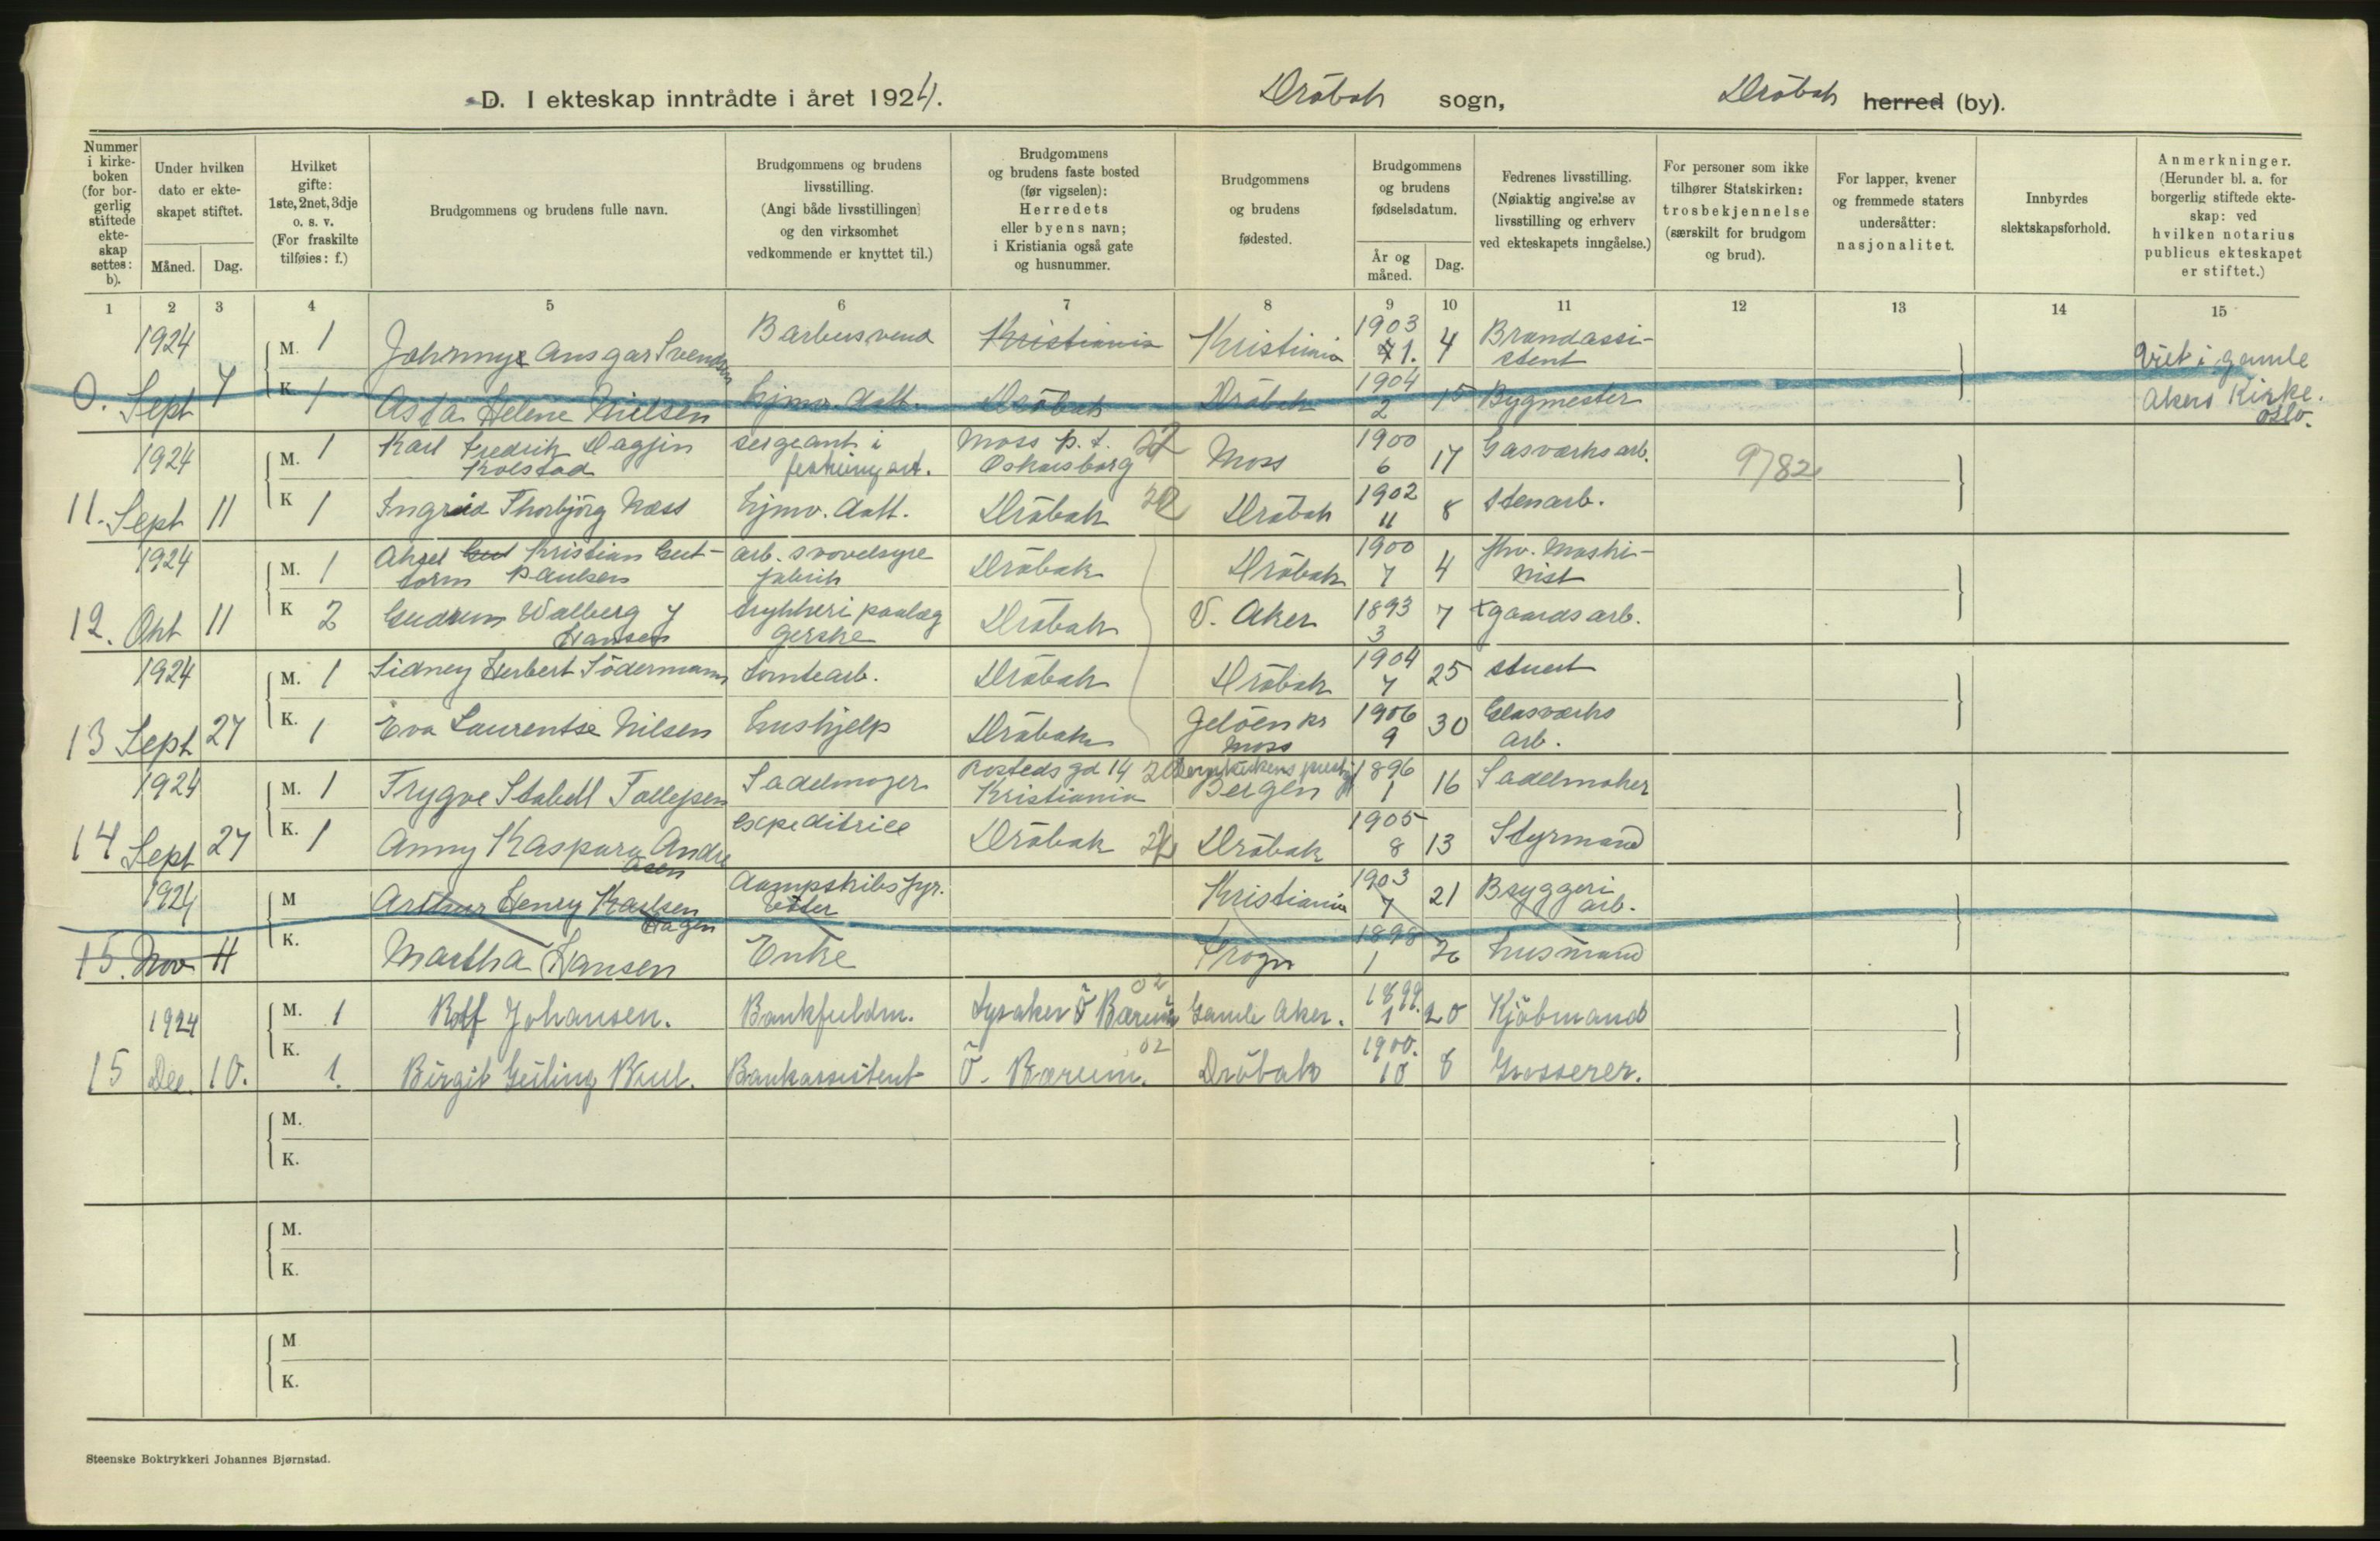 D. I ekteskap inntrådte i året 1924. Dröbak sogn, Dröbak herred (by).
Nummer i kirkeboken (for borgerlig stiftede ekteskap settes: b).
Under hvilken dato er ekteskapet stiftet.
Måned. Dag.
Hvilket gifte: 1ste, 2net, 3dje o. s. v. (For fraskilte tilføies: f.)
Brudgommens og brudens fulle navn.
Brudgommens og brudens livsstilling. (Angi både livsstillingen og den virksomhet vedkommende er knyttet til.)
Brudgommens og brudens faste bosted (før vigselen): Herredets eller byens navn; i Kristiania også gate og husnummer.
Brudgommens og brudens fødested.
Brudgommens og brudens fødselsdatum.
År og måned. Dag.
Fedrenes livsstilling. (Nøiaktig angivelse av livsstilling og erhverv ved ekteskapets inngåelse.)
For personer som ikke tilhører Statskirken: trosbekjennelse (særskilt for brudgom og brud).
For lapper, kvener og fremmede staters undersåtter: nasjonalitet.
Innbyrdes slektskapsforhold.
Anmerkninger. (Herunder bl. a. for borgerlig stiftede ekteskap: ved hvilken notarius publicus ekteskapet er stiftet.)
1 2 3 4 5 6 7 8 9 10 11 12 13 14 15
1924 M. 1 Johnny Ansgar Svendsen Barbersvend Kristiania Kristiania 1903 1. 4 Brandassistent
0. Sept 7 K 1 Asta Helene Nielsen hjmv. datt. Dröbak Dröbak 1904 2 15 Bygmester
Viet i gamle
Akers Kirke.
Oslo.
1924 M. 1 Karl Fredrik Dagfin Kolstad Sergeant i festningsart. Moss p. t. Oskarsborg Moss 1900 6 17 Gasværksarb. 9782
11. Sept 11 K 1 Ingrid Thorbjörg Næss hjmv. datt. Dröbak Dröbak 1902 11 8 Stenarb.
1924 M. 1 Aksel Kristian Guttorm Paulsen arb. svovelsyre fabrik Dröbak Dröbak 1900 7 4 fhv. Maskinist
12. Okt 11 K 2 Gudrun Walberg Hansen Dröbak V. Aker 1893 3 7 gaardsarb.
1924 M. 1 Sidney Herbert Södermann tomtearb. Dröbak Dröbak 1904 7 25 stuert
13 Sept 27 K. 1 Eva Laurentse Nilsen hushjelp Dröbak Jelöen pr Moss 1906 9 30 Glasværks arb.
1924 M. 1 Trygve Stabell Tollefsen Sadelmager Rosteds gd 14 Kristiania Bergen 1896 1 16 Sadelmaker
14 Sept 27 K. 1 Anny Kaspara Andreasen Expeditrice Dröbak Dröbak 1905 8 13 Styrmand
1924 M Arthur Henry Karlsen Hagen Dampskibsfyr. Kristiania 1903 7 21 Bryggeri arb.
15. Nov 11 K. Martha Hansen Enke Frogn 1898 1 26 husmand
1924 M. 1 Rolf Johansen. Bankfuldm. Lysaker Ö Bærum 02 Gamle Aker. 1899. 1 20 Kjöbmand
15 Dec. 10. K. 1. Birgit Geiling Buul. Bankassistent Ö. Bærum. 02 Dröbak 1900. 10 8 Grosserer.
M.
K.
M.
K.
M
K.
Steenske Boktrykkeri Johannes Bjørnstad.